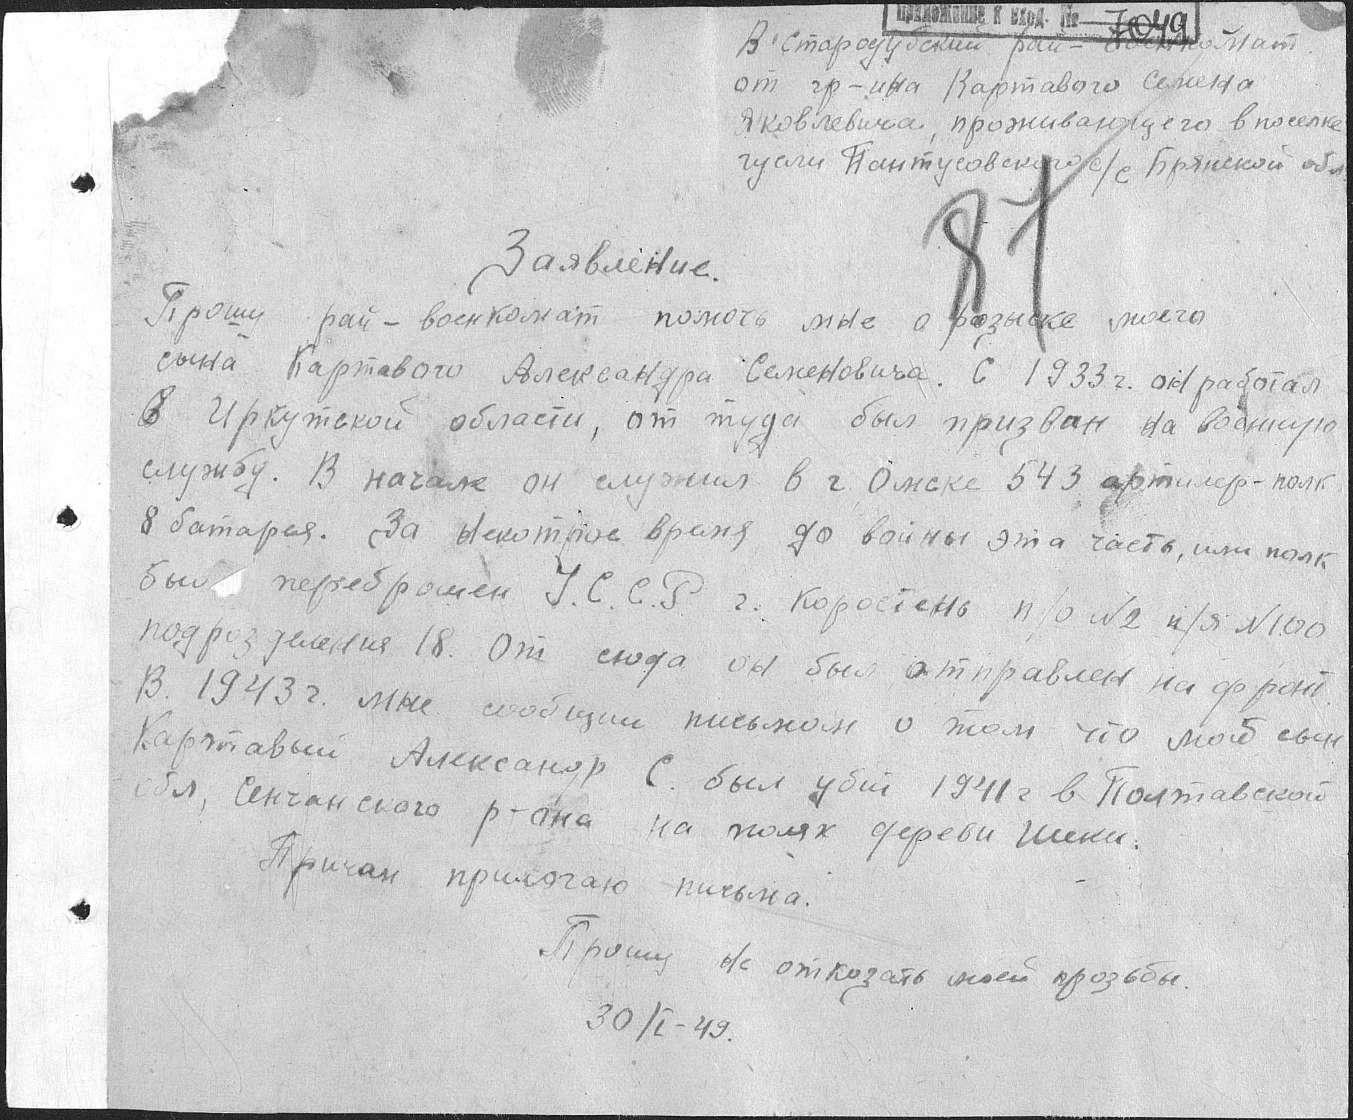 Приложение к вход. № 7049
В Стародубский рай-военкомат
от гр-ина Картавого Семена
Яковлевича, проживающего в поселке
гусли Пантусовского с/с Брянской обл
87
Заявление.
Прошу рай-военкомат помочь мне о розыске моего
сына Картавого Александра Семеновича. С 1933 г. он работал
в Иркутской области, от туда был призван на военную
службу. В начале он служил в г. Омске 543 артилер-полк
8 батарея. За некотрое время до войны эта часть, или полк
был переброшен У.С.С.Р г. Коростень п/о №2 п/я №100
подрозделения 18. От сюда он был отправлен на фронт.
В. 1943 г. мне сообщили письмом о том что мой сын
Картавый Александр С. был убит 1941 г в Полтавской
обл, Сенчанского р-она на полях деревни Шеки.
Причем прилогаю письма.
Прошу не отказать моей прозьбы.
30/I-49.